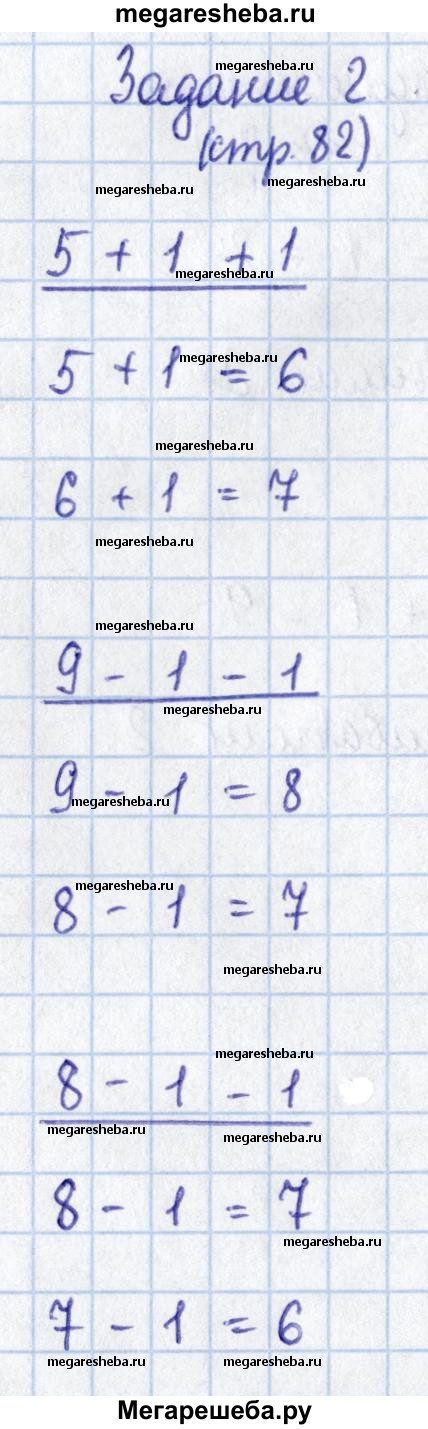 megaresheba.ru
megaresheba.ru
Задание 2
(стр. 82)
megaresheba.ru
megaresheba.ru
5 + 1 + 1
megaresheba.ru
5 + 1 = 6
megaresheba.ru
megaresheba.ru
6 + 1 = 7
megaresheba.ru
megaresheba.ru
9 - 1 - 1
megaresheba.ru
9 - 1 = 8
megaresheba.ru
megaresheba.ru
8 - 1 = 7
megaresheba.ru
megaresheba.ru
8 - 1 - 1
megaresheba.ru
megaresheba.ru
8 - 1 = 7
megaresheba.ru
7 - 1 = 6
megaresheba.ru megaresheba.ru
Мегарешеба.ру